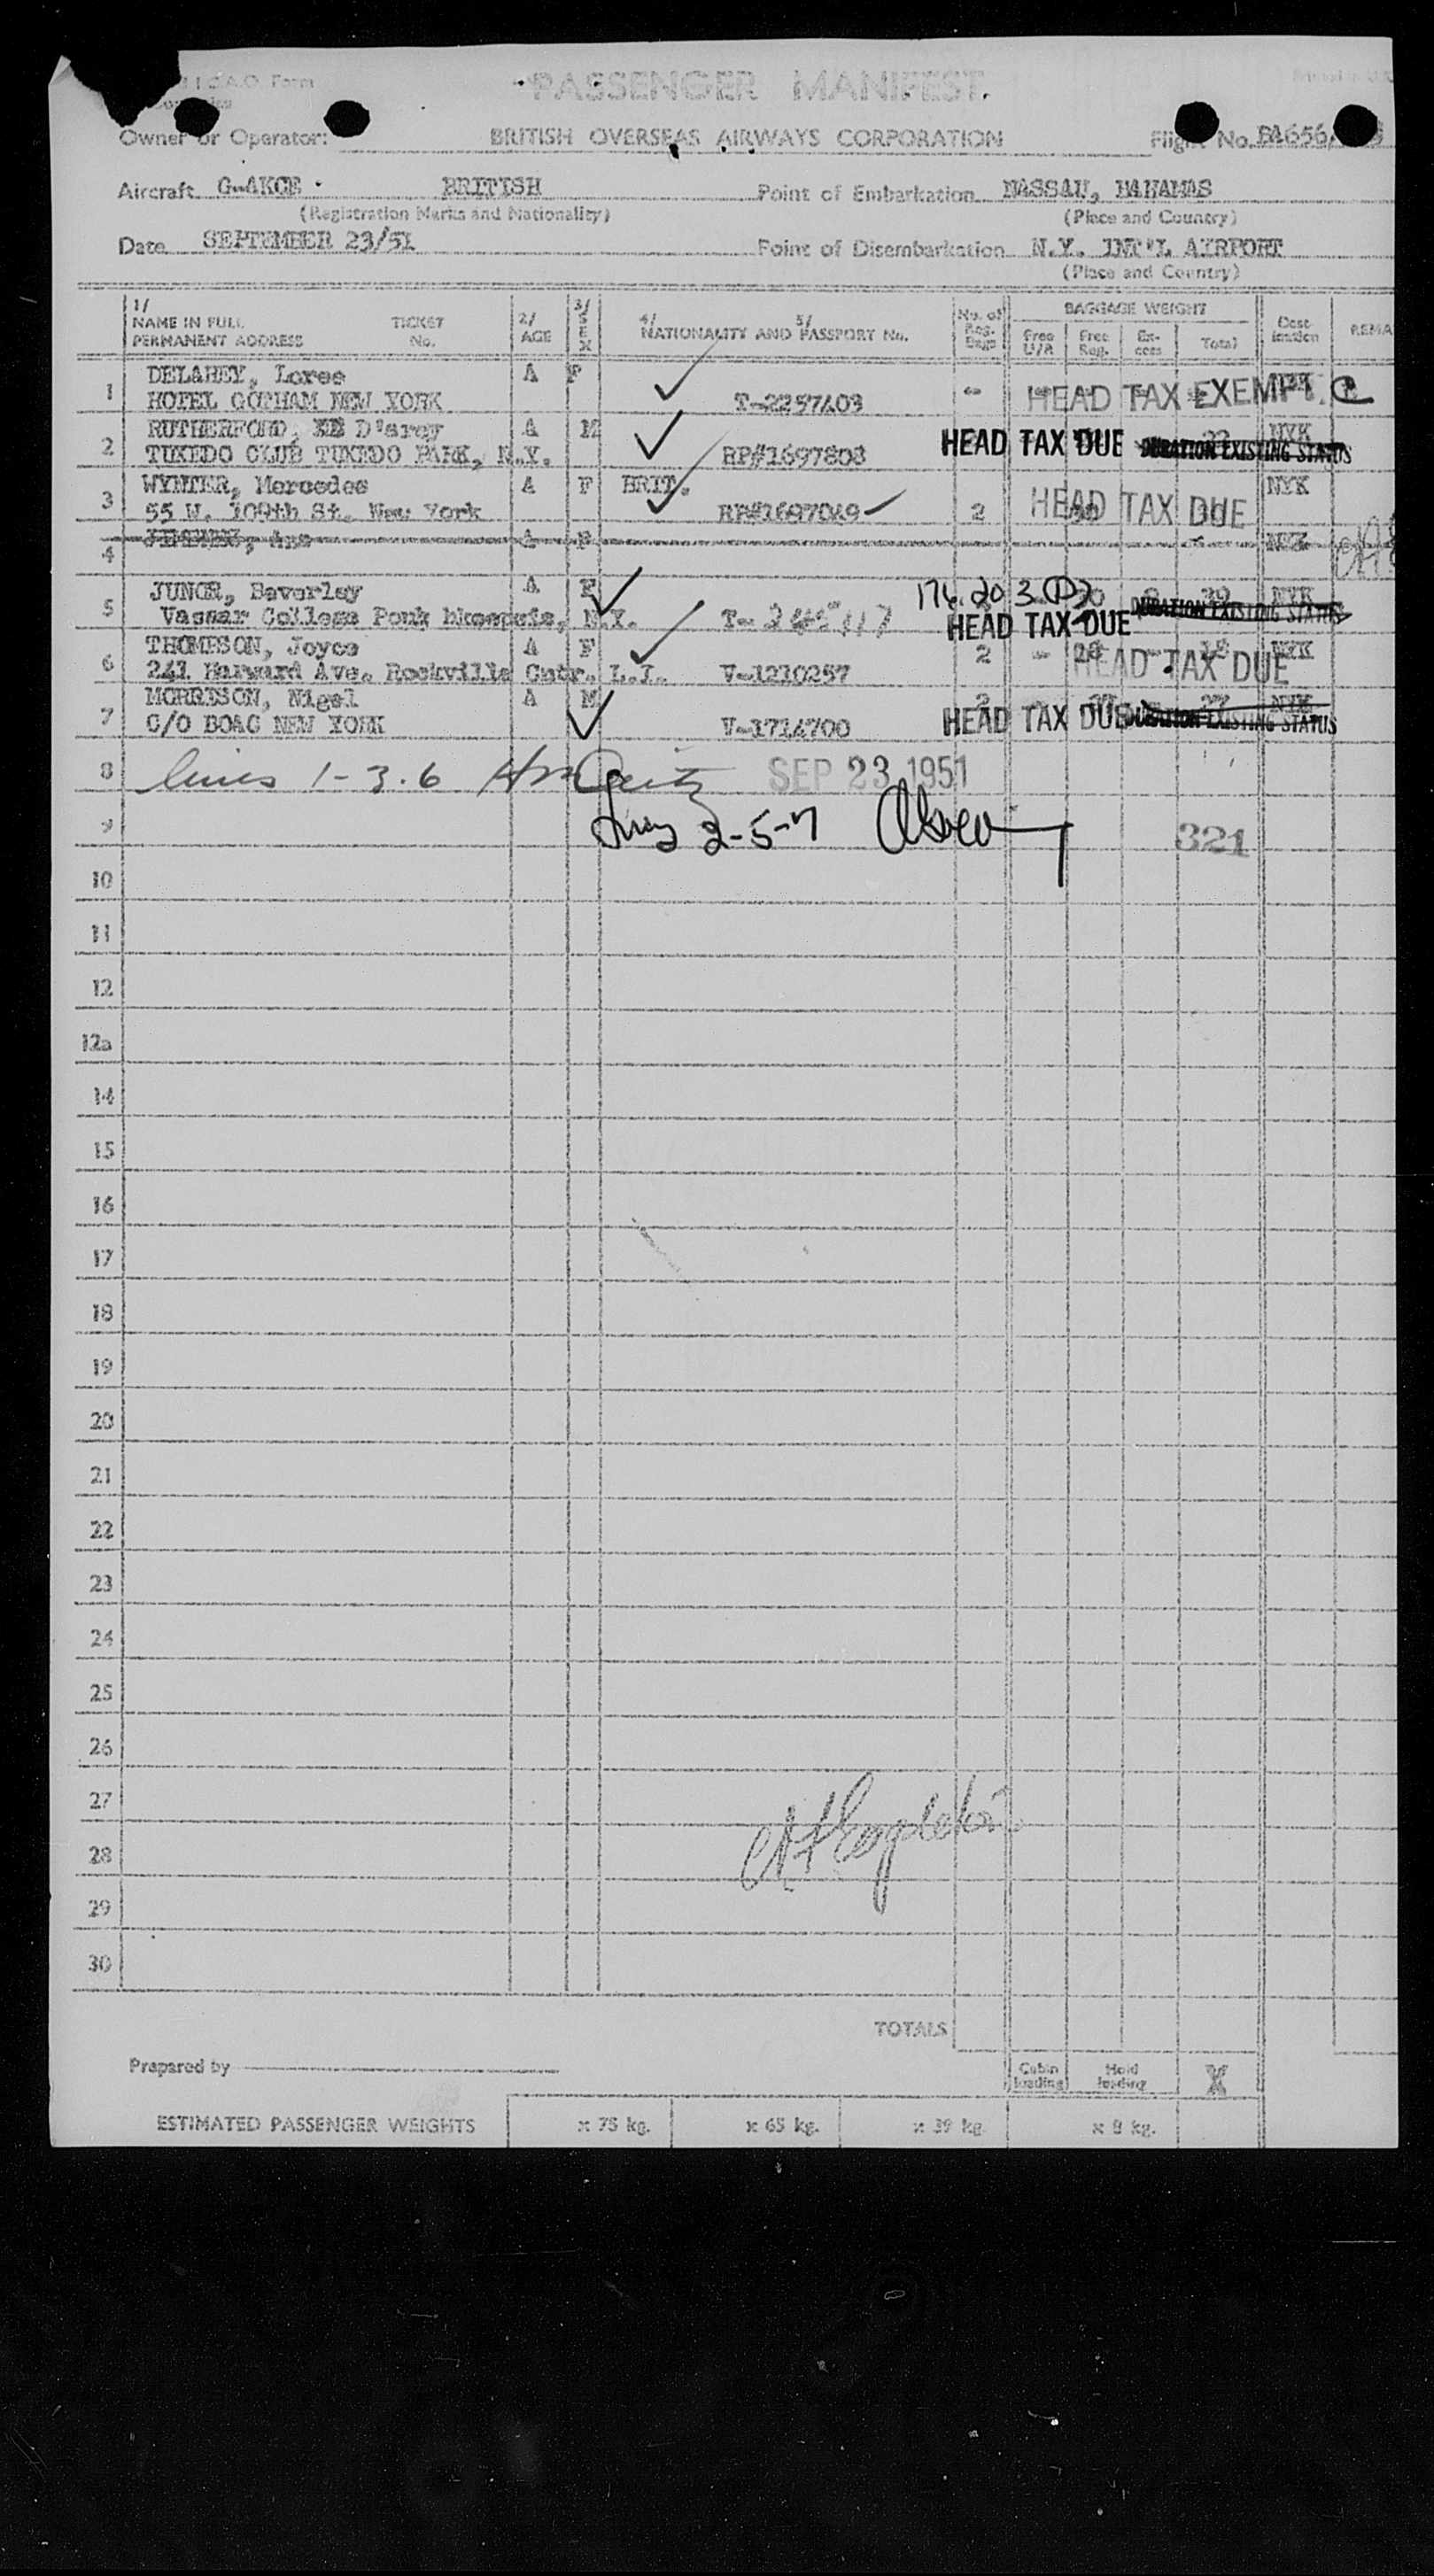 I.C.A.O. Form
PASSENGER MANIFEST
Owner or Operator: BRITISH OVERSEAS AIRWAYS CORPORATION Flight No. BA656/
Aircraft G-AKCE BRITISH Point of Embarkation NASSAU, BAHAMAS
(Registration Marks and Nationality) (Place and Country)
Date SEPTEMBER 23/51 Point of Disembarkation N.Y. INT'L AIRPORT
(Place and Country)
1/ NAME IN FULL PERMANENT ADDRESS TICKET No. 2/ AGE 3/ SEX 4/ NATIONALITY AND 5/ PASSPORT No. No. of Reg. Bags BAGGAGE WEIGHT Free U/A Free Reg. Ex-cess Total Dest-ination REMA
1 DELAHEY, Loree A F
HOTEL GOTHAM NEW YORK T-2257403 - HEAD TAX EXEMPT.
2 RUTHERFORD, D'arcy A M NYK
TUXEDO CLUB TUXEDO PARK, N.Y. RP#1697808 HEAD TAX DUE DURATION EXISTING STATUS
3 WYNTER, Mercedes A F BRIT. NYK
55 W. 109th St. New York RP#1697049 2 HEAD TAX DUE
4 A F NYK
5 JUNOR, Beverley A F 30 39 NYK
Vassar College N.Y. T- HEAD TAX DUE DURATION EXISTING STATUS
6 THOMPSON, Joyce A F 2 - 18 - 18 NYK
241 Harward Ave. Rockville Cntr. L.I. V-1210257 HEAD TAX DUE
7 MORRISON, Nigel A M 2 27 NYK
C/O BOAC NEW YORK V-1714700 HEAD TAX DUE DURATION EXISTING STATUS
8 lines 1-3.6 SEP 23 1951
9 2-5-7 321
10
11
12
12a
14
15
16
17
18
19
20
21
22
23
24
25
26
27
28
29
30
TOTALS
Prepared by Cabin loading Hold loading
ESTIMATED PASSENGER WEIGHTS x 75 kg. x 65 kg. x 39 kg. x 8 kg.